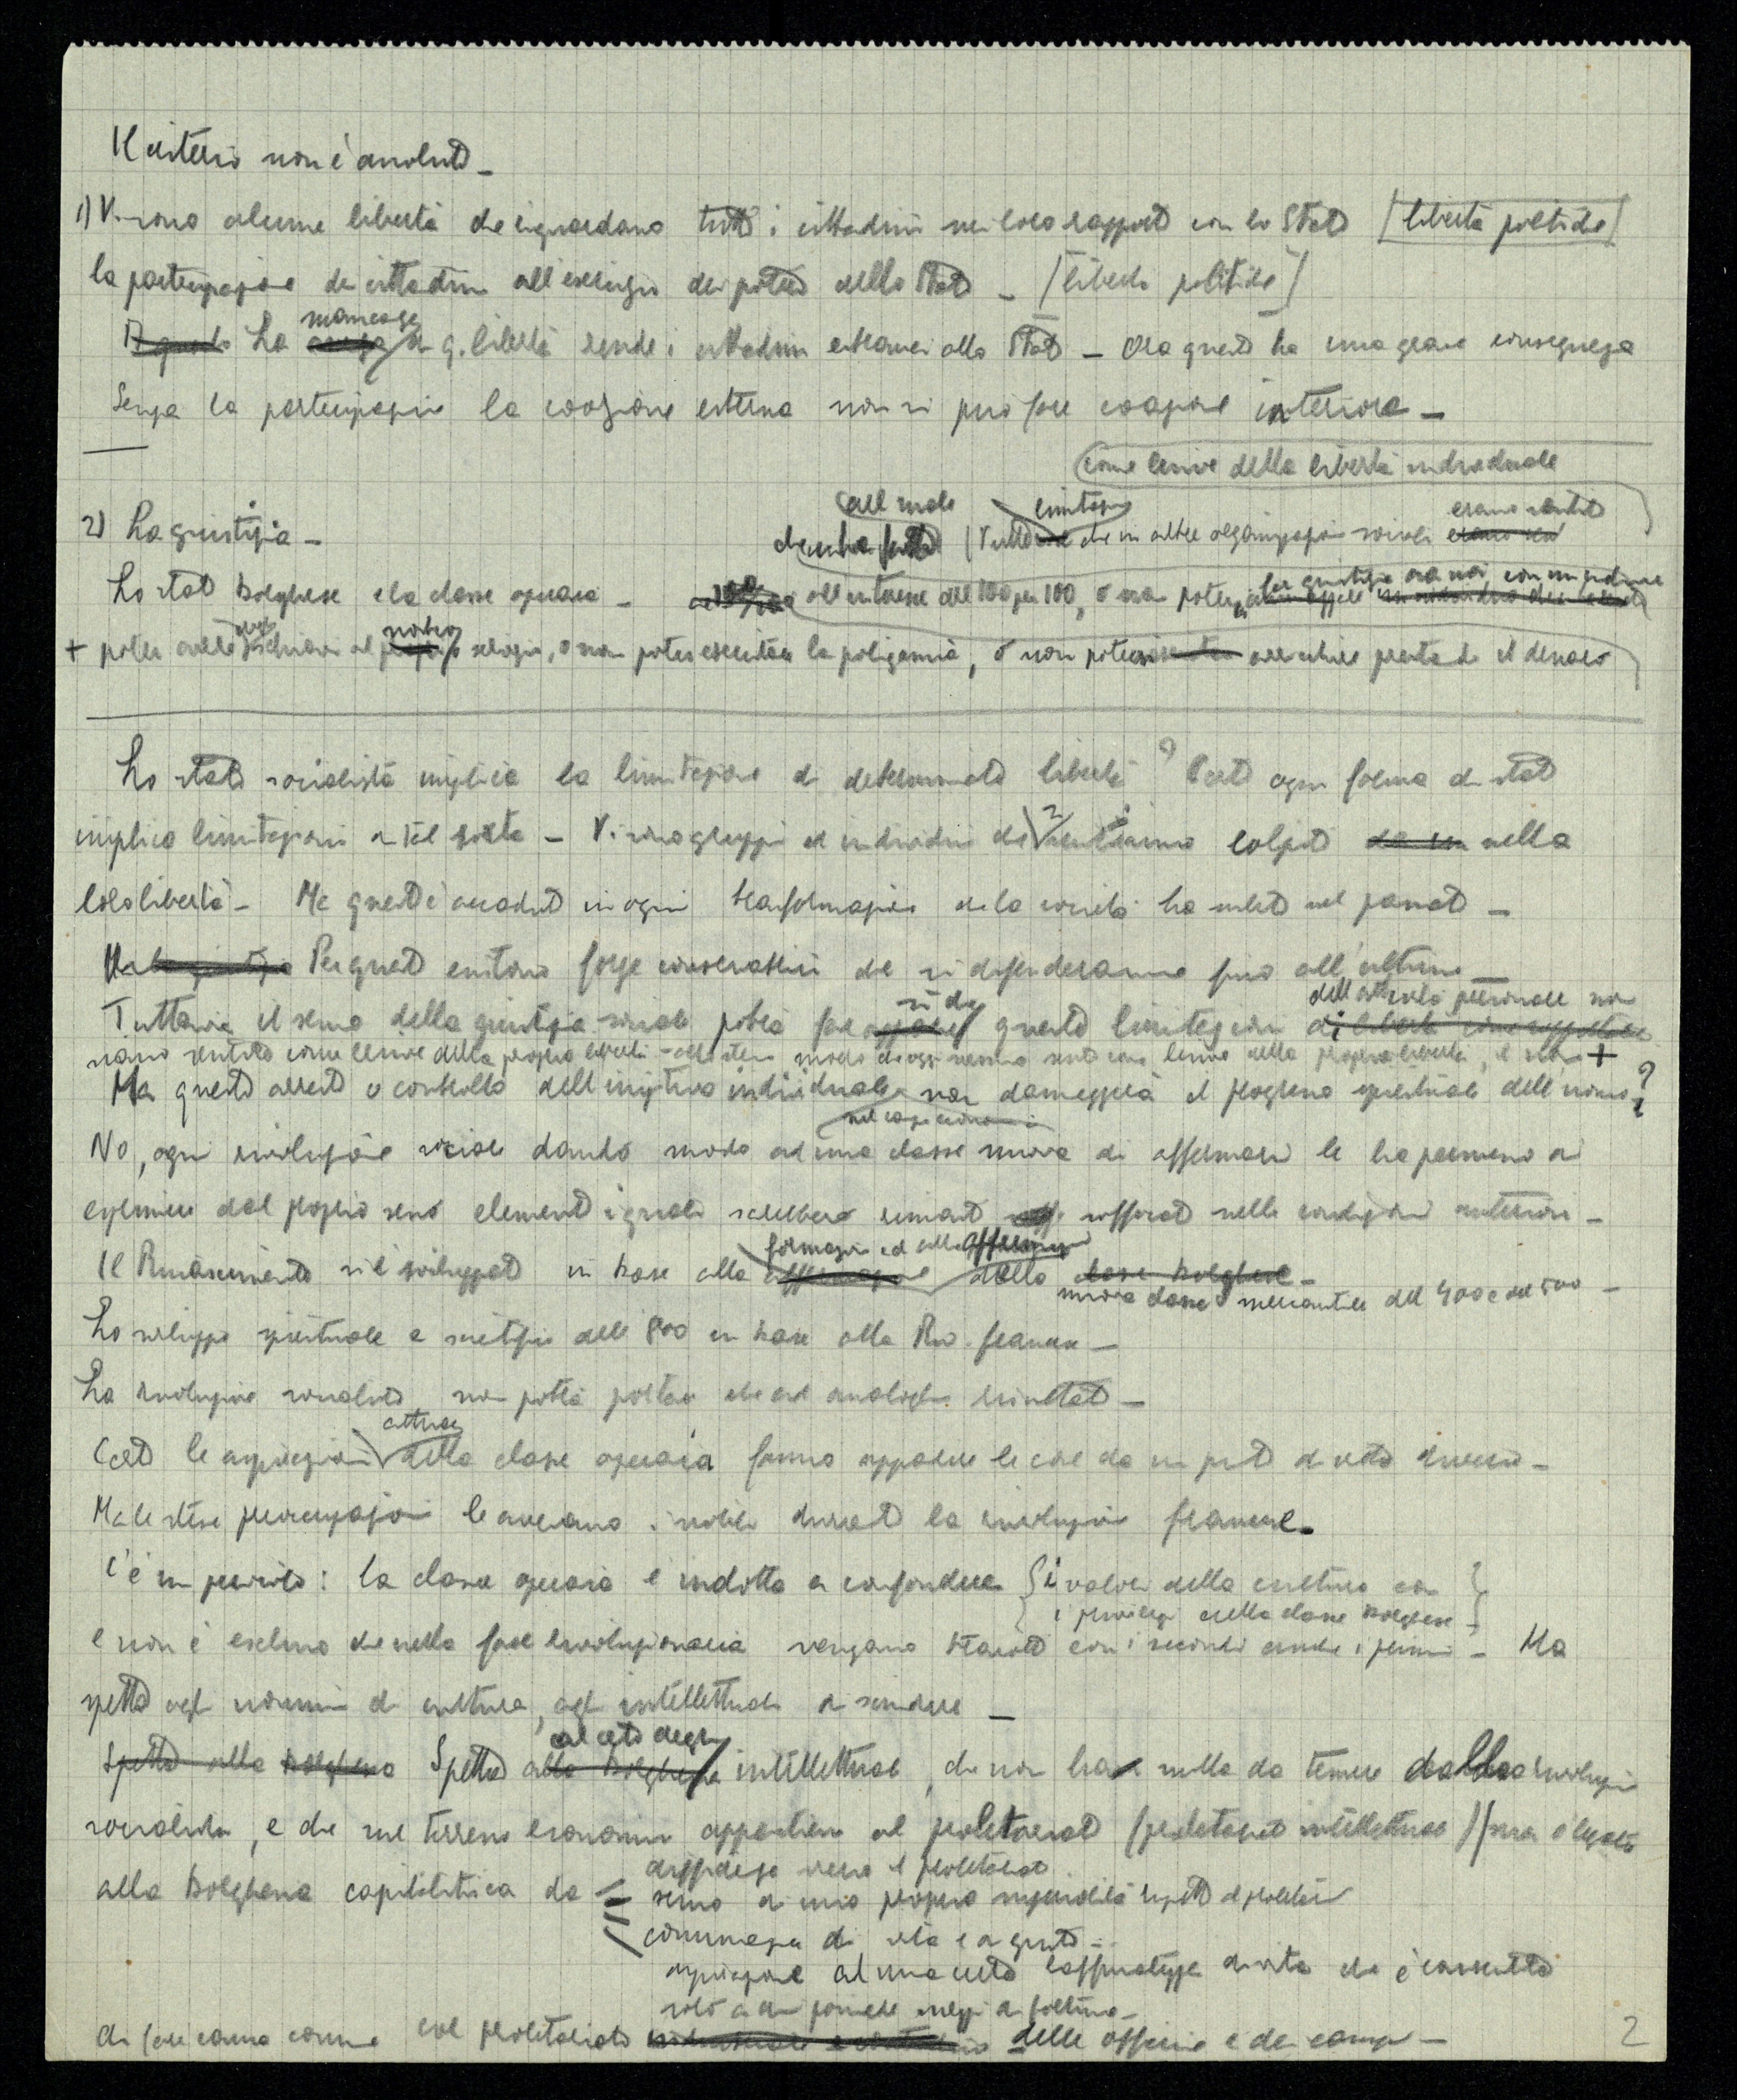 Il criterio non è assoluto –
1) Vi sono alcune libertà che riguardano tutti i cittadini nei loro rapporti con lo Stato [libertà politiche]
la partecipazione dei cittadini all'esercizio dei poteri dello Stato – [libertà politiche]
La mancanza di q. libertà rende i cittadini estranei allo Stato – Ora questo ha una grave conseguenza
Senza la partecipazione la coazione esterna non si può fare coazione interiore –
come lesive della libertà individuale
2) La giustizia –
che in altre organizzazioni sociali erano sentite
Lo stato borghese e la classe operaia – all'interesse del 100 per 100, o non potersi
+ poter avere schiavi al nostro servizio, o non poter esercitare la poligamia, o non potersi arricchire prestando il denaro
Lo stato socialista implica la limitazione di determinate libertà? Certo ogni forma di stato
implica limitazioni di tal sorta – Vi sono gruppi ed individui che si sentiranno colpiti nella
loro libertà – Ma questo è accaduto in ogni trasformazione che la società ha subito nel passato –
Per questo esistono forze conservatrici che si difenderanno fino all'ultimo –
Tuttavia il senso della giustizia sociale potrà far sì che queste limitazioni dell'attività personale non
siano sentite come lesive della propria libertà – allo stesso modo che oggi nessuno sente come lesive della propria libertà, il non +
Ma questo arresto o controllo dell'iniziativa individuale non danneggerà il progresso spirituale dell'uomo?
No, ogni rivoluzione sociale dando modo ad una classe nuova di affermarsi le ha permesso di
esprimere dal proprio seno elementi i quali sarebbero rimasti soffocati nelle condizioni anteriori –
Il Rinascimento si è sviluppato in base alla formazione ed alla affermazione della
nuova classe mercantile del 400 e del 500 –
Lo sviluppo spirituale e scientifico dell'800 in base alla Riv. francese –
La rivoluzione socialista non potrà portare che ad analoghi risultati –
Certo le aspirazioni attuali della classe operaia fanno apparire le cose da un punto di vista diverso –
Ma le stesse preoccupazioni le avevano i nobili durante la rivoluzione francese.
C'è un pericolo: la classe operaia è indotta a confondere { i valori della cultura con }
{ i privilegi della classe borghese }
e non è escluso che nella fase rivoluzionaria vengano travolti con i secondi anche i primi – Ma
spetta agli uomini di cultura, agli intellettuali di scindere –
Spetta al ceto degli intellettuali, che non ha nulla da temere dalla rivoluzione
socialista, e che sul terreno economico appartiene al proletariato (proletariato intellettuale) (ma è legato
alla borghesia capitalistica da
diffidenza verso il proletariato
senso di una propria superiorità rispetto al proletariato
comunanza di vita e di gusti –
aspirazione ad una certa raffinatezza di vita che è consentita
solo a chi possiede mezzi di fortuna –
di fare causa comune col proletariato delle officine e dei campi –
2